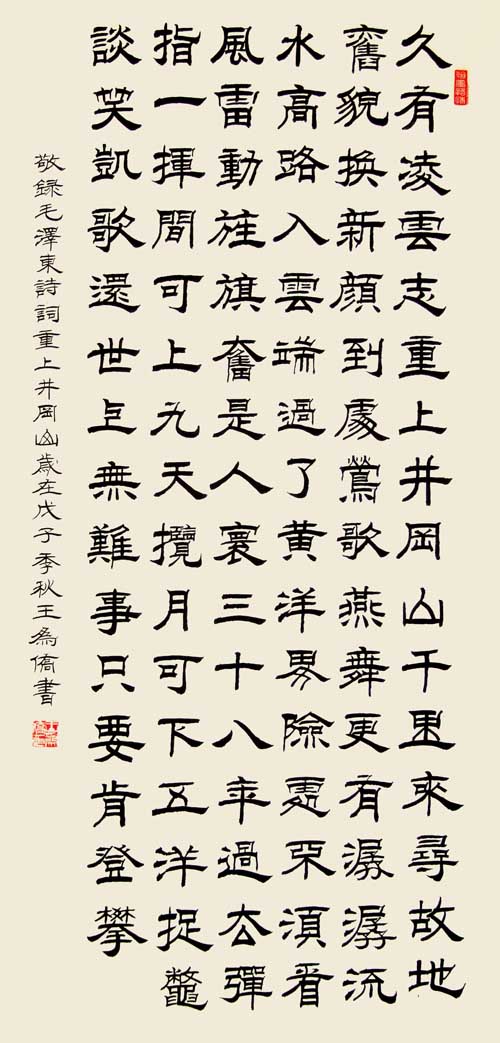 久有凌雲志重上井岡山千里來尋故地
舊貌換新顏到處鶯歌燕舞更有潺潺流
水高路入雲端過了黃洋界險處不須看
風雷動旌旗奮是人寰三十八年過去彈
指一揮間可上九天攬月可下五洋捉鱉
談笑凱歌還世上無難事只要肯登攀
敬錄毛澤東詩詞重上井岡山歲在戊子季秋王為僑書